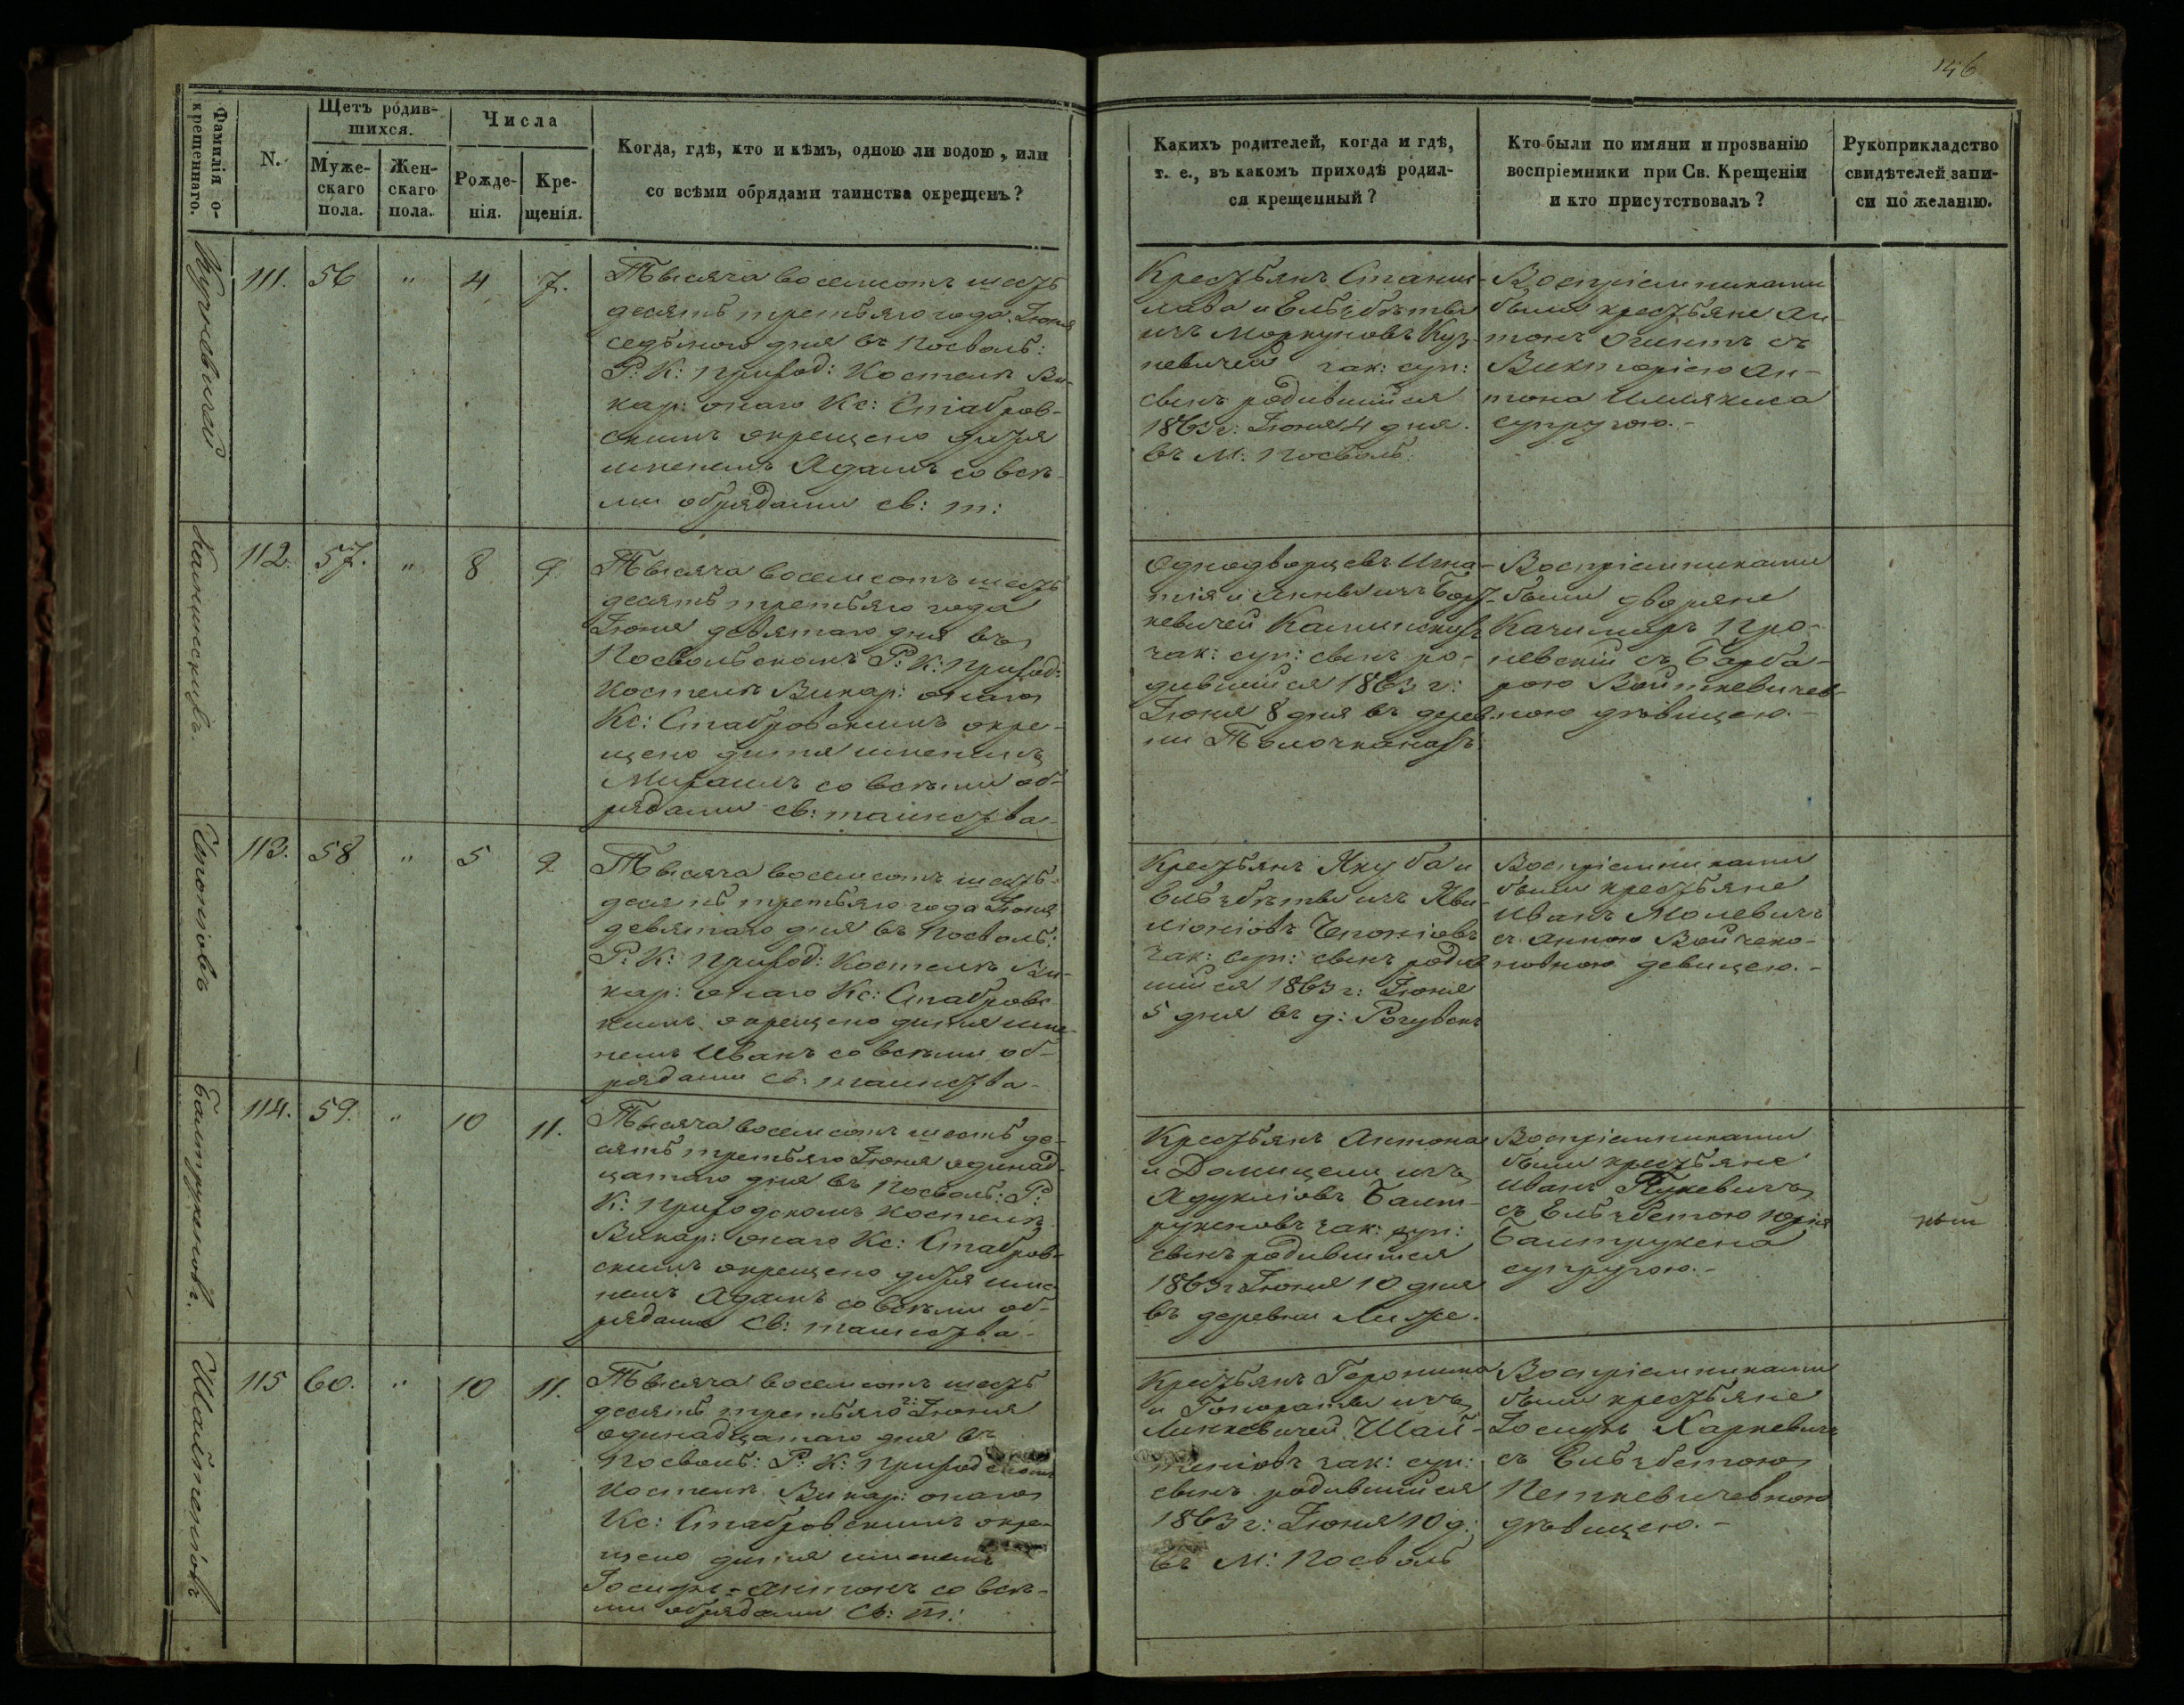 146
Фамилія о-
крещеннаго.
N.
Щетъ родив-
шихся.
Муже-
скаго
пола.
Жен-
скаго
пола.
Числа
Рожде-
нія.
Кре-
щенія.
Когда, гдѣ, кто и кѣмъ, одною ли водою, или
со всѣми обрядами таинства окрещенъ?
Какихъ родителей, когда и гдѣ,
т. е., въ какомъ приходѣ родил-
ся крещенный?
Кто были по имяни и прозванію
воспріемники при Св. Крещеніи
и кто присутствовалъ?
Рукоприкладство
свидѣтелей запи-
си по желанію.
111.
56
"
4
7.
Тысяча восемсотъ шесть
десятъ третьяго года Іюня
седьмого дня въ Посволь:
Р: К: Приход: Костелѣ Ви-
кар: онаго Кс: Стабров-
скимъ окрещено дитя
именемъ Адамъ со всѣ-
ми обрядами св: т:
Крестьянъ Станис-
лава и Ельзбѣты
изъ
невичей зак: суп:
сынъ родившийся
1863 г: Іюня 4 дня.
въ М: Посволь.
Воспріемниками
были крестьяне Ан-
тонъ съ
Викторіею Ан-
тона
супругою.-
Каминскихъ
112.
57.
"
8
9
Тысяча восемсотъ шесть
десятъ третьяго года
Іюня девятаго дня въ
Посвольскомъ Р: К: Приход:
Костелѣ Викар: онаго
Кс: Стабровскимъ окре-
щено дитя именемъ
Михаилъ со всѣми об-
рядами св: таинства-
Однодворцевъ Игна-
тія и Анны изъ
невичей Каминскихъ
зак: суп: сынъ ро-
дившийся 1863 г:
Іюня 8 дня въ дерев-
ни
Воспріемниками
были дворяне
Качимиръ
съ Барба-
рою Войткевичев-
ною дѣвицею.-
Чепонiовъ
113.
58
"
5
9
Тысяча восемсотъ шесть-
десятъ третьяго года Іюня
девятаго дня въ Посволь:
Р: К: Приход: Костелѣ Ви-
кар: онаго Кс: Стабровс-
кимъ окрещено дитя име-
немъ Иванъ со всѣми об-
рядами св: таинства-
Крестьянъ Якуба и
Ельзбѣты изъ
Чепоніовъ
зак: суп: сынъ родив-
шийся 1863 г: Іюня
5 дня въ д:
Воспріемниками
были крестьяне
Иванъ
съ Анною
девицею.-
Балтрукеновъ.
114.
59.
"
10
11.
Тысяча восемсотъ шесть де-
сятъ третьяго Іюня одинад-
цатаго дня въ Посволь: Р:
К: Приходскомъ Костелѣ
Викар: онаго Кс: Стабров-
скимъ окрещено дитя име-
немъ Адамъ со всѣми об-
рядами Св: таинства-
Крестьянъ Антона
и Доницели изъ
Балт-
рукеновъ зак: суп:
сынъ родившийся
1863 г Іюня 10 дня
въ деревни
Воспріемниками
были крестьяне
Иванъ
съ Ельзбетою Юрія
Балтрукена
супругою.-
115
60.
"
10
11.
Тысяча восемсотъ шесть
десятъ третьяго г: Іюня
одинадцатаго дня въ
Посволь: Р: К: Приходскомъ
Костелѣ Викар: онаго
Кс: Стабровскимъ окре-
щено дитя именемъ
Іосифъ-Антонъ со всѣ-
ми обрядами Св: т:
Крестьянъ Геронима
и изъ
Линкевичей Шай-
зак: суп:
сынъ родившийся
1863 г: Іюня 10 д:
въ М: Посволь
Воспріемниками
были крестьяне
Іосифъ Харкевичъ
съ Ельзбетою
Петкевичевною
дѣвицею.-